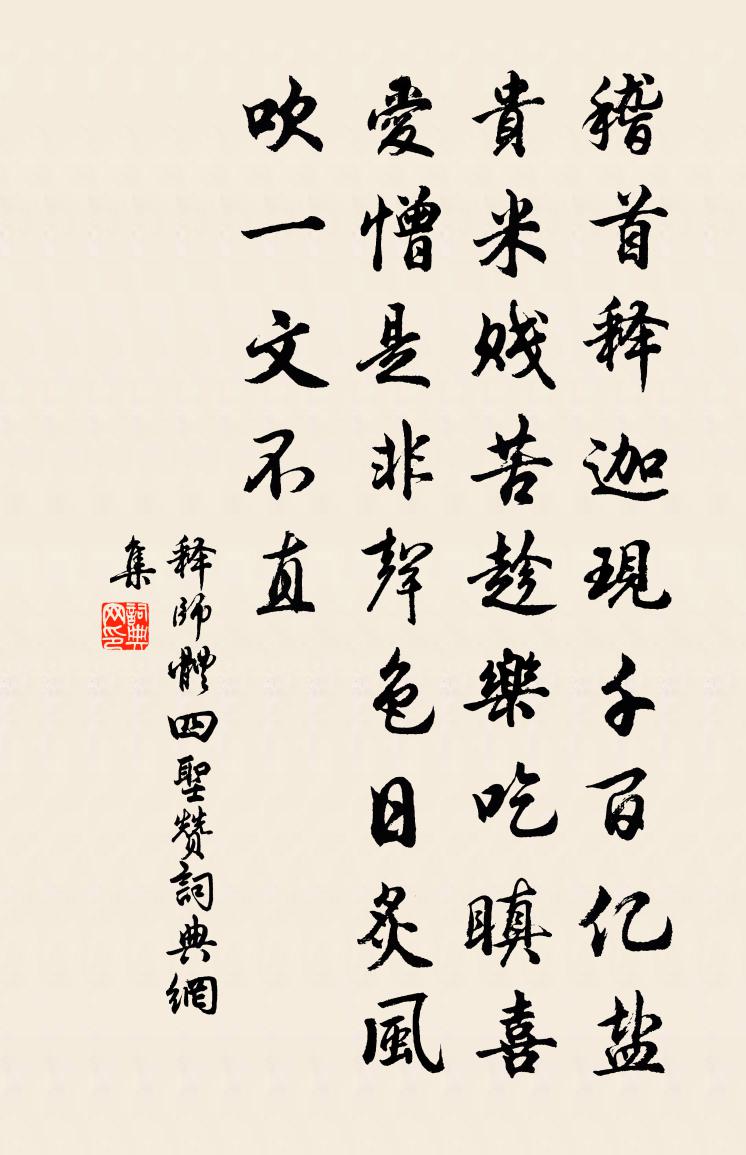 稽首释迦現千百亿盐
貴米贱苦趁樂吃瞋喜
愛憎是非聲色日炙風
吹一文不直
释師體四聖赞詞典網
集
詞典网印